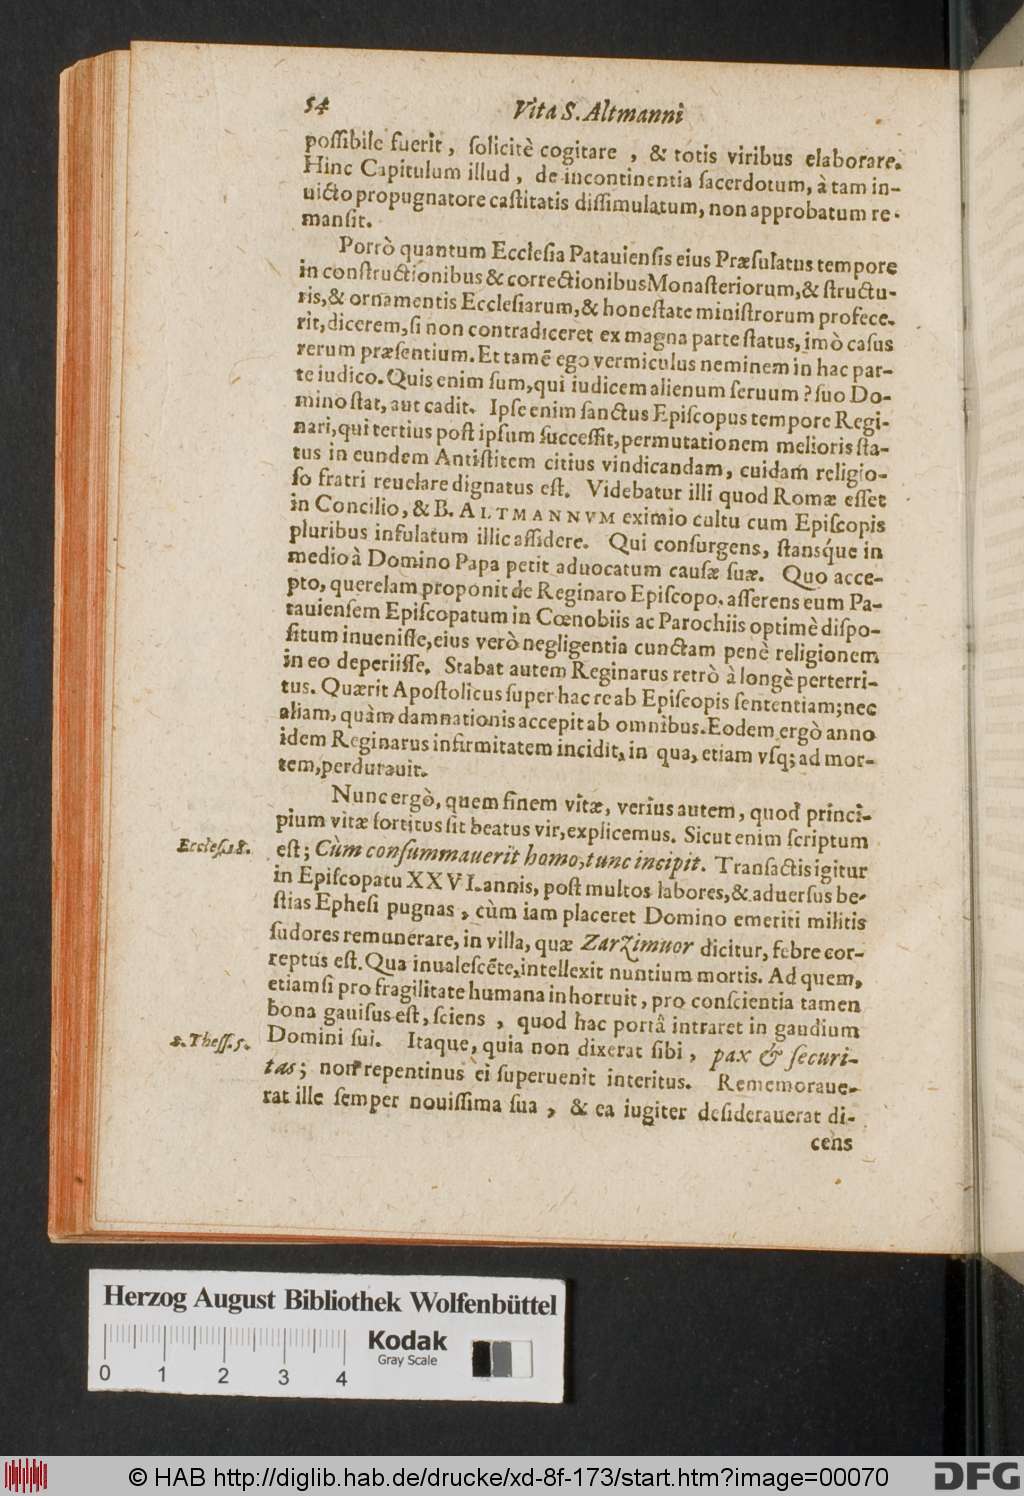 54 Vita S. Altmanni
possibile fuerit, solicitè cogitare, & totis viribus elaborare.
Hinc Capitulum illud, de incontinentia sacerdotum, à tam in-
uicto propugnatore castitatis dissimulatum, non approbatum re-
mansit.
Porrò quantum Ecclesia Patauiensis eius Præsulatus tempore
in constructionibus & correctionibus Monasteriorum, & structu-
ris, & ornamentis Ecclesiarum, & honestate ministrorum profece-
rit, dicerem, si non contradiceret ex magna parte status, imò casus
rerum præsentium. Et tamē ego vermiculus neminem in hac par-
te iudico. Quis enim sum, qui iudicem alienum seruum? suo Do-
mino stat, aut cadit. Ipse enim sanctus Episcopus tempore Regi-
nari, qui tertius post ipsum successit, permutationem melioris sta-
tus in eundem Antistitem citius vindicandam, cuidam religio-
so fratri reuelare dignatus est. Videbatur illi quod Romæ esset
in Concilio, & B. ALTMANNVM eximio cultu cum Episcopis
pluribus infulatum illic assidere. Qui consurgens, stansq́ue in
medio à Domino Papa petit aduocatum causæ suæ. Quo acce-
pto, querelam proponit de Reginaro Episcopo, asserens eum Pa-
tauiensem Episcopatum in Cœnobiis ac Parochiis optimè dispo-
situm inuenisse, eius verò negligentia cunctam penè religionem
in eo deperiisse. Stabat autem Reginarus retrò à longè perterri-
tus. Quærit Apostolicus super hac re ab Episcopis sententiam; nec
aliam, quàm damnationis accepit ab omnibus. Eodem ergò anno
idem Reginarus infirmitatem incidit, in qua, etiam vsq; ad mor-
tem, perdurauit.
Nunc ergò, quem finem vitæ, verius autem, quod princi-
pium vitæ sortitus sit beatus vir, explicemus. Sicut enim scriptum
Eccles. 18.
est; Cùm consummauerit homo, tunc incipit. Transactis igitur
in Episcopatu XXVI. annis, post multos labores, & aduersus be-
stias Ephesi pugnas, cùm iam placeret Domino emeriti militis
sudores remunerare, in villa, quæ Zarzimuor dicitur, febre cor-
reptus est. Qua inualescēte, intellexit nuntium mortis. Ad quem,
etiamsi pro fragilitate humana inhorruit, pro conscientia tamen
bona gauisus est, sciens, quod hac portâ intraret in gaudium
1. Thess. 5.
Domini sui. Itaque, quia non dixerat sibi, pax & securi-
tas; non repentinus ei superuenit interitus. Rememoraue-
rat ille semper nouissima sua, & ea iugiter desiderauerat di-
cens
Herzog August Bibliothek Wolfenbüttel
0 1 2 3 4
Kodak
Gray Scale
© HAB http://diglib.hab.de/drucke/xd-8f-173/start.htm?image=00070
DFG